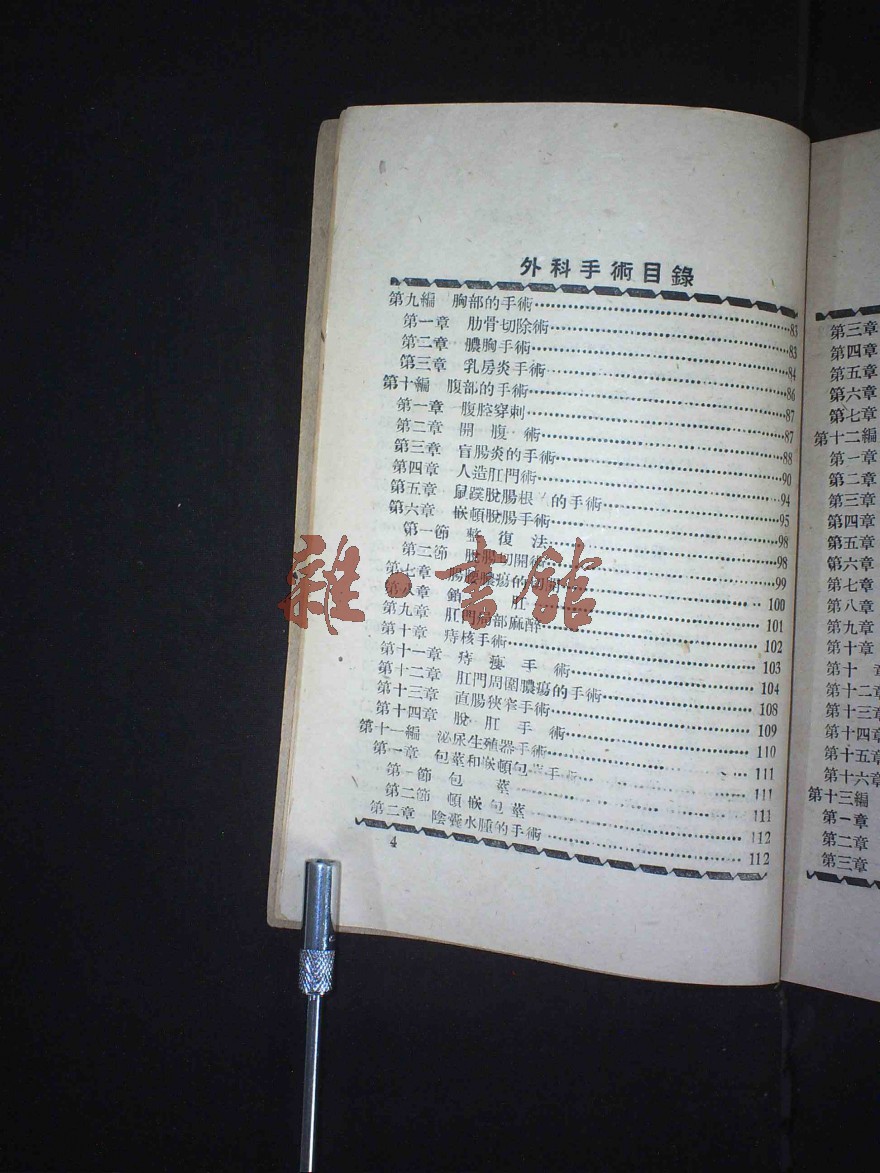 外科手術目錄
第九編 胸部的手術……83
第一章 肋骨切除術……83
第二章 膿胸手術……84
第三章 乳房炎手術……86
第十編 腹部的手術……87
第一章 腹腔穿刺……87
第二章 開腹術……88
第三章 盲腸炎的手術……90
第四章 人造肛門術……94
第五章 鼠蹊脫腸根 的手術……95
第六章 嵌頓脫腸手術……98
第一節 整復法……98
第二節 脫腸切開術……99
第七章 腸腰膿瘍的……100
第八章 鎖肛……101
第九章 肛門部麻醉……102
第十章 痔核手術……103
第十一章 痔瘻手術……104
第十二章 肛門周圍膿瘍的手術……108
第十三章 直腸狹窄手術……109
第十四章 脫肛手術……110
第十一編 泌尿生殖器手術……111
第一章 包莖和嵌頓包莖手術……111
第一節 包莖……111
第二節 頓嵌包莖……112
第二章 陰囊水腫的手術……112
4
雜·書館
第三章
第四章
第五章
第六章
第七章
第十二編
第一章
第二章
第三章
第四章
第五章
第六章
第七章
第八章
第九章
第十章
第十
第十二章
第十三章
第十四章
第十五章
第十六章
第十三編
第一章
第二章
第三章